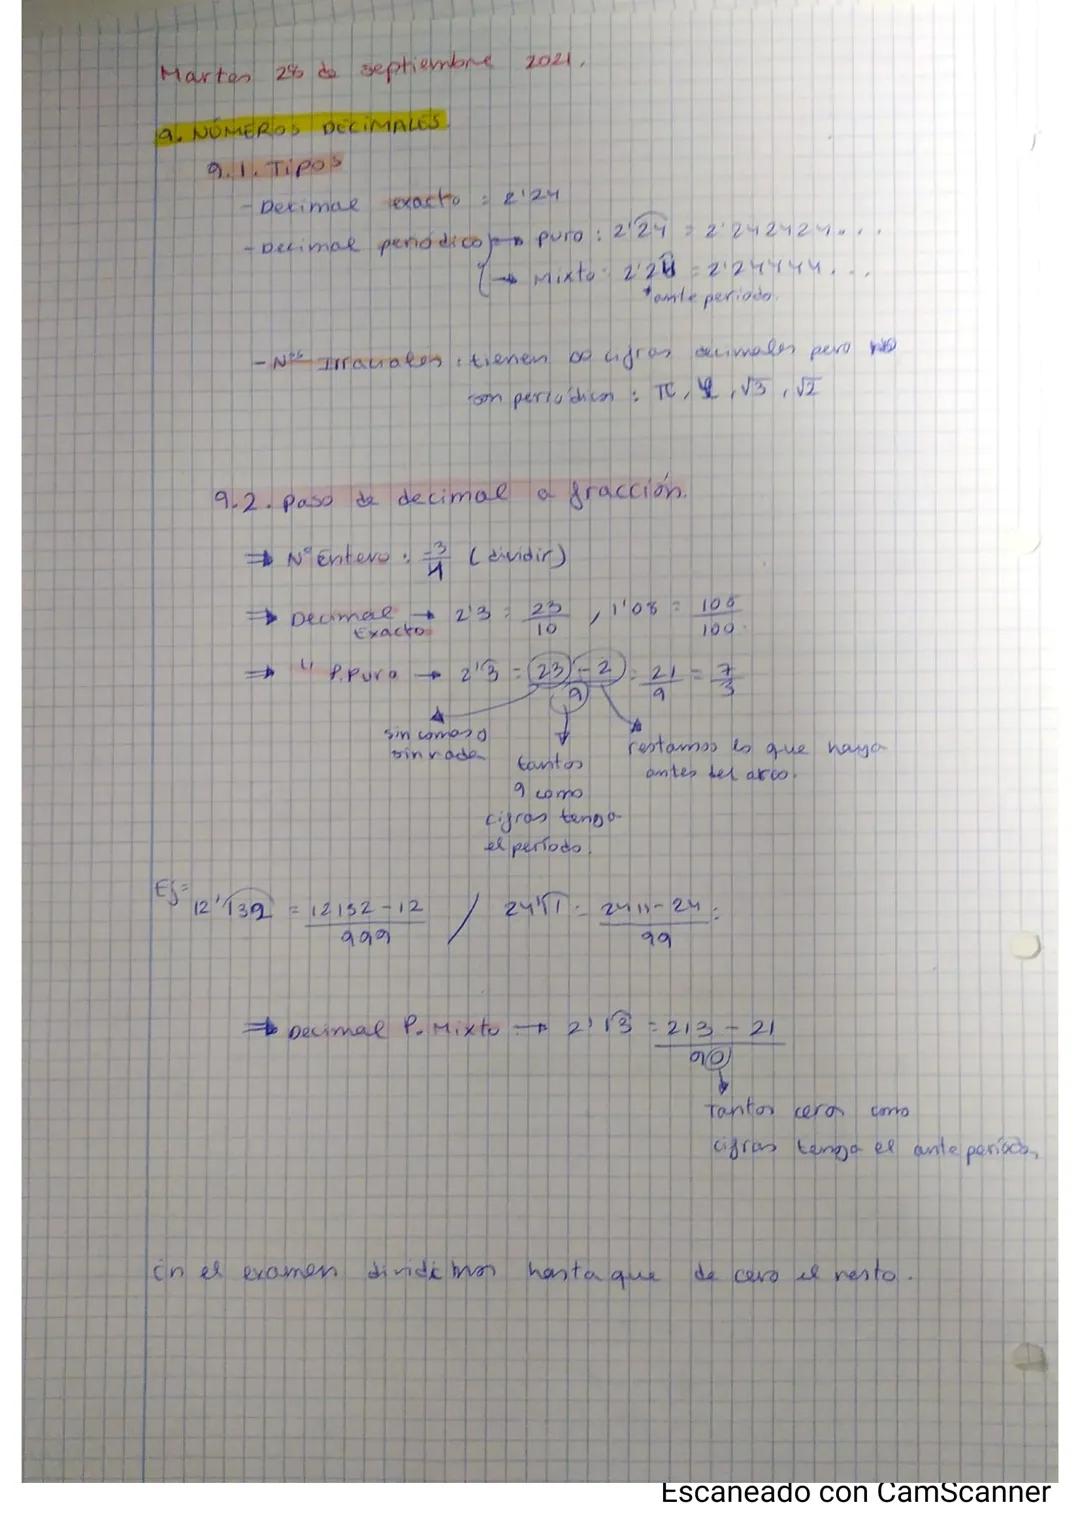 Martes 28 de septiembre 2021.
9. NÚMEROS DECIMALES
9.1. Tipos
- Decimal exacto : 2'24
- Decimal periódico → puro : 2'24 = 2'242424...
→ Mixto : 2'24 = 2'24444...
*anteperiodo.
- Nos Irracionales : tienen ∞ cifras decimales pero NO
son periódicos : π, φ, √3, √2
9.2. Paso de decimal a fracción.
⇒ Nº Entero : -3/4 (dividir)
⇒ Decimal Exacto → 2'3 = 23/10 , 1'08 = 108/100
⇒ " P.Puro → 2'3 = 23-2/9 = 21/9 = 7/3
sin comas o
sin nada
tantos
9 como
cifras tenga
el período.
restamos lo que haya
antes del arco.
Ej= 12'132 = 12132-12/999 / 24'11 = 2411-24/99 =
⇒ Decimal P. Mixto → 2'13 = 213-21/90
Tantos ceros como
cifras tenga el anteperíodo,
En el examen dividimos hasta que de cero el resto.
Escaneado con CamScanner